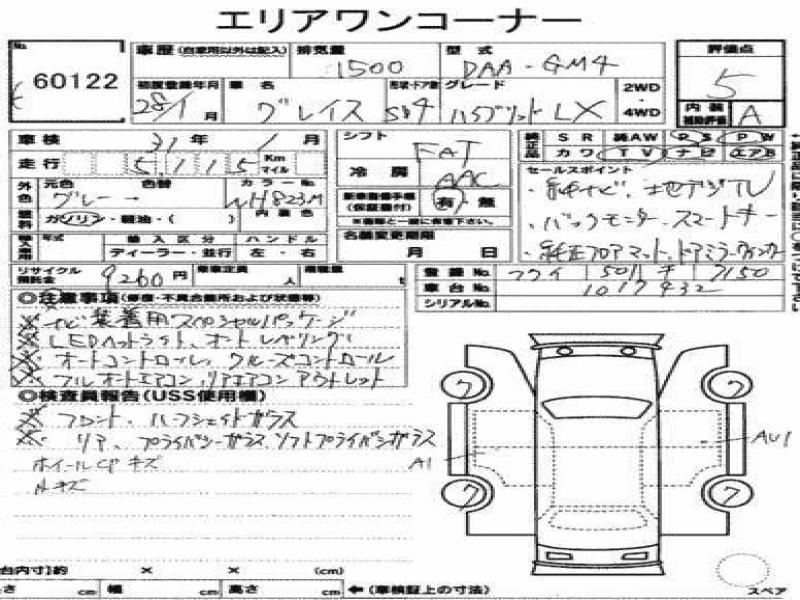 エリアワンコーナー
No. 60122
車歴 (自家用以外は記入) 排気量 1500 型式 DAA-GM4 評価点 5
初度登録年月 28/1月 車名 グレイス 形状・ドア数 SD4 グレード ハイブリッド LX 2WD・4WD 内装補助評価 A
車検 31年 1月 シフト FAT 純正品 SR 純AW PS PW
カワ TV ナビ エアB
走行 5,115 Km マイル 冷房 AAC セールスポイント
・純正ナビ、地デジTV
外色 元色 グレー 色替 → カラーNo. NH823M 内装色 新車整備手帳 (保証書付) 有・無
・バックモニター、スマートキー
燃料 ガソリン・軽油・( ) ※書類と一緒に保管下さい。
・純正フロアマット、ドアミラーウィンカー
輸入車用 年式 輸入区分 ディーラー・並行 ハンドル 左・右 名義変更期限 月 日
リサイクル預託金 9260円 乗車定員 人 積載量 t 登録No. 501 7150
車台No. 1017932
シリアルNo.
◎注意事項 (修復・不具合箇所および状態等)
ナビ装着用スペシャルパッケージ
LEDヘッドライト、オートレベリング
オートコントロール、クルーズコントロール
フルオートエアコン、リアエアコンアウトレット
◎検査員報告 (USS使用欄)
フロント、ハーフシェイドガラス
リア、プライバシーガラス、ソフトプライバシーガラス
ホイールCPキズ
キズ
A1 AU1
ワ ワ
ワ ワ
台内寸)約 × × (cm)
さ cm 幅 cm 高さ cm ←(車検証上の寸法)
スペア